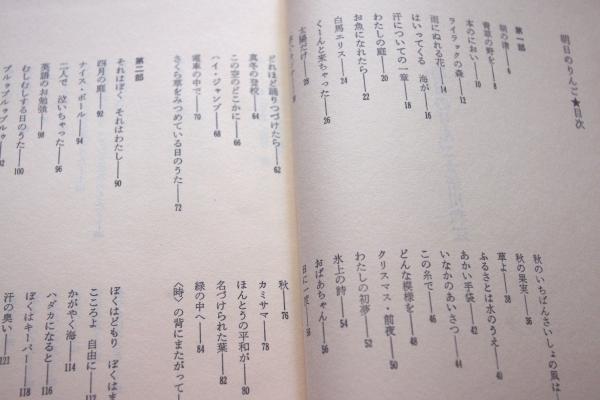 明日のりんご★目次
第一部
朝の渚――6
青草の野を――8
本のにおい――10
ライラックの森――12
雨にぬれる花――14
はいってくる 海が――16
汗についての一章――18
わたしの庭――20
お魚になれたら――22
白馬エリス――24
くーんと来ちゃった――26
太陽だけ――28
秋のいちばんさいしょの風は――
秋の果実――36
草よ――38
ふるさとは水のうえ――40
あかい手袋――42
いなかのあいさつ――44
この糸で――46
どんな模様を――48
クリスマス・前夜――50
わたしの初夢――52
氷上の詩――54
おばあちゃん――56
どれほど踊りつづけたら――62
真冬の登校――64
この空のどこかに――66
ハイ・ジャンプ――68
電車の中で――70
さくら草をみつめている日のうた――72
秋――76
カミサマ――78
ほんとうの平和が――80
名づけられた葉――82
緑の中へ――84
〈時〉の背にまたがって――
第二部
それはぼく それはわたし――90
四月の庭――92
ナイス・ボール――94
二人で 泣いちゃった――96
英語のお勉強――98
むしむしする日のうた――100
ブルゥブルゥブルゥ
ぼくはどもり ぼくはま
こころよ 自由に――112
かがやく海――114
ハダカになると――116
ぼくはキーパー――118
汗の臭い――121